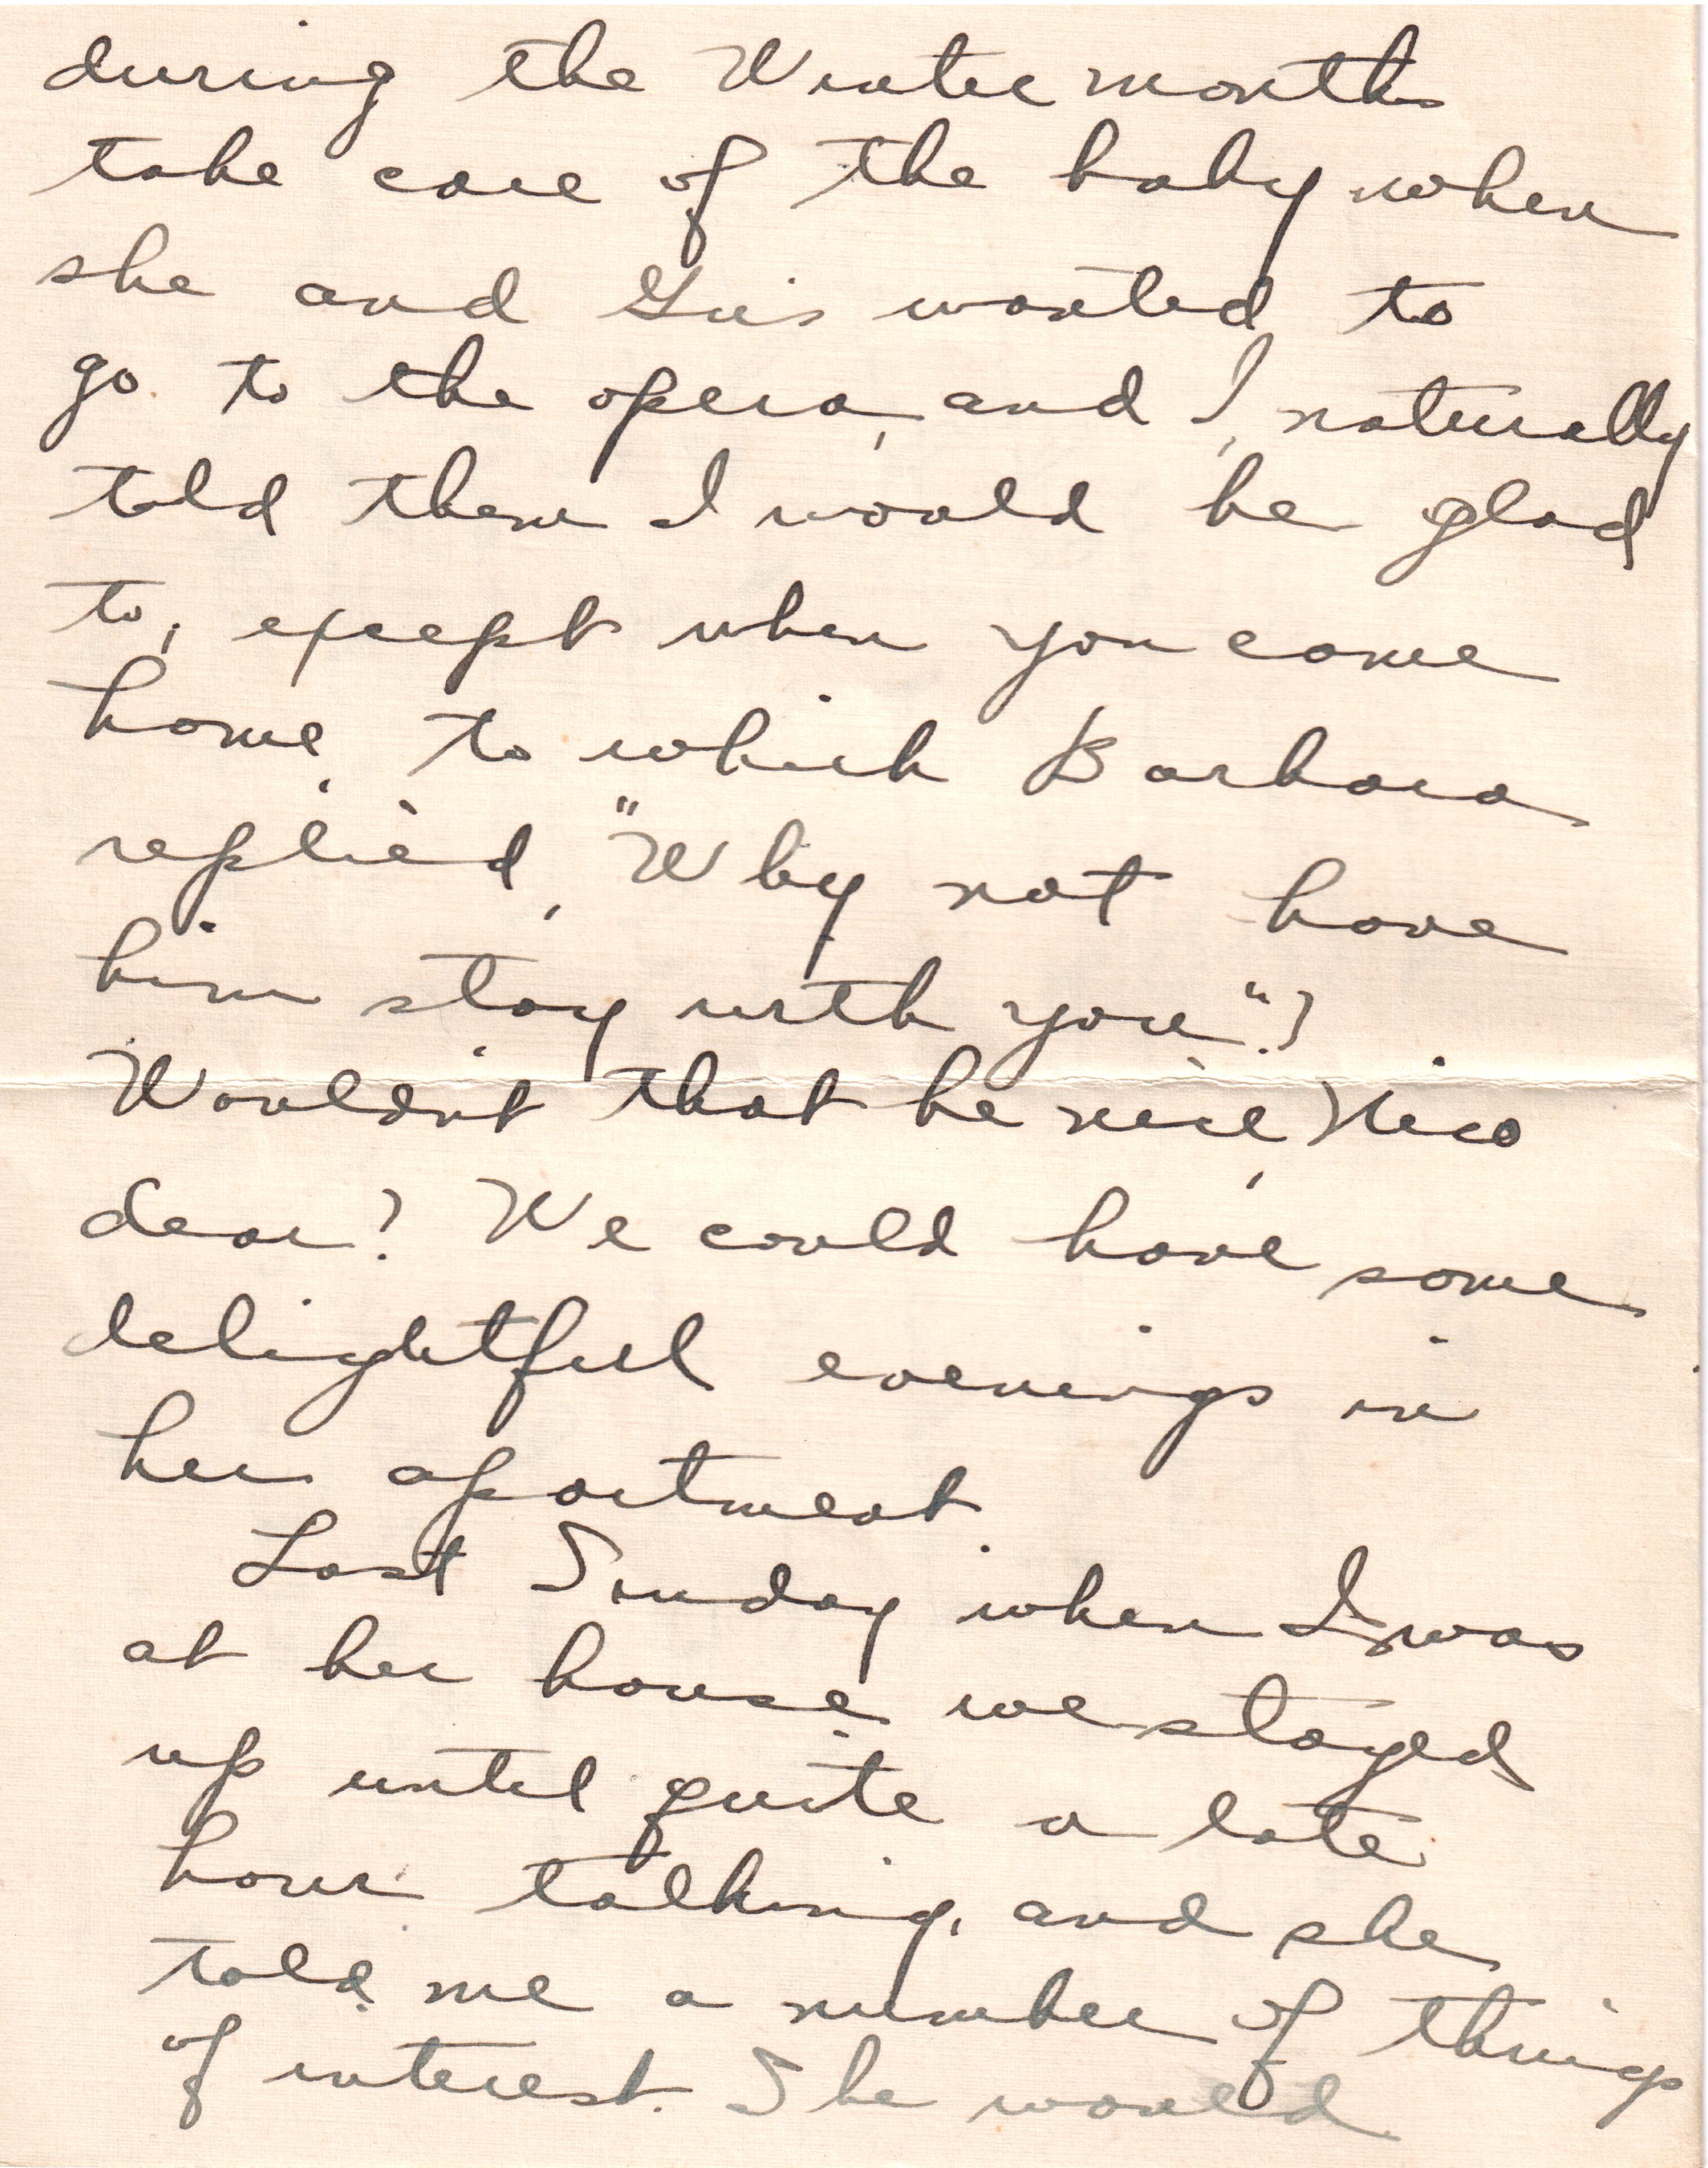 during the Winter months
take care of the baby when
she and Gus wanted to
go to the opera, and I, naturally
told them I would be glad
to, except when you come
home, to which Barbara
replied, "Why not have
him stay with you"?
Wouldn't that be nice, Nico
dear? We could have some
delightful evenings in
her apartment.
Last Sunday when I was
at her house we stayed
up until quite a late
hour talking, and she
told me a number of things
of interest. She would